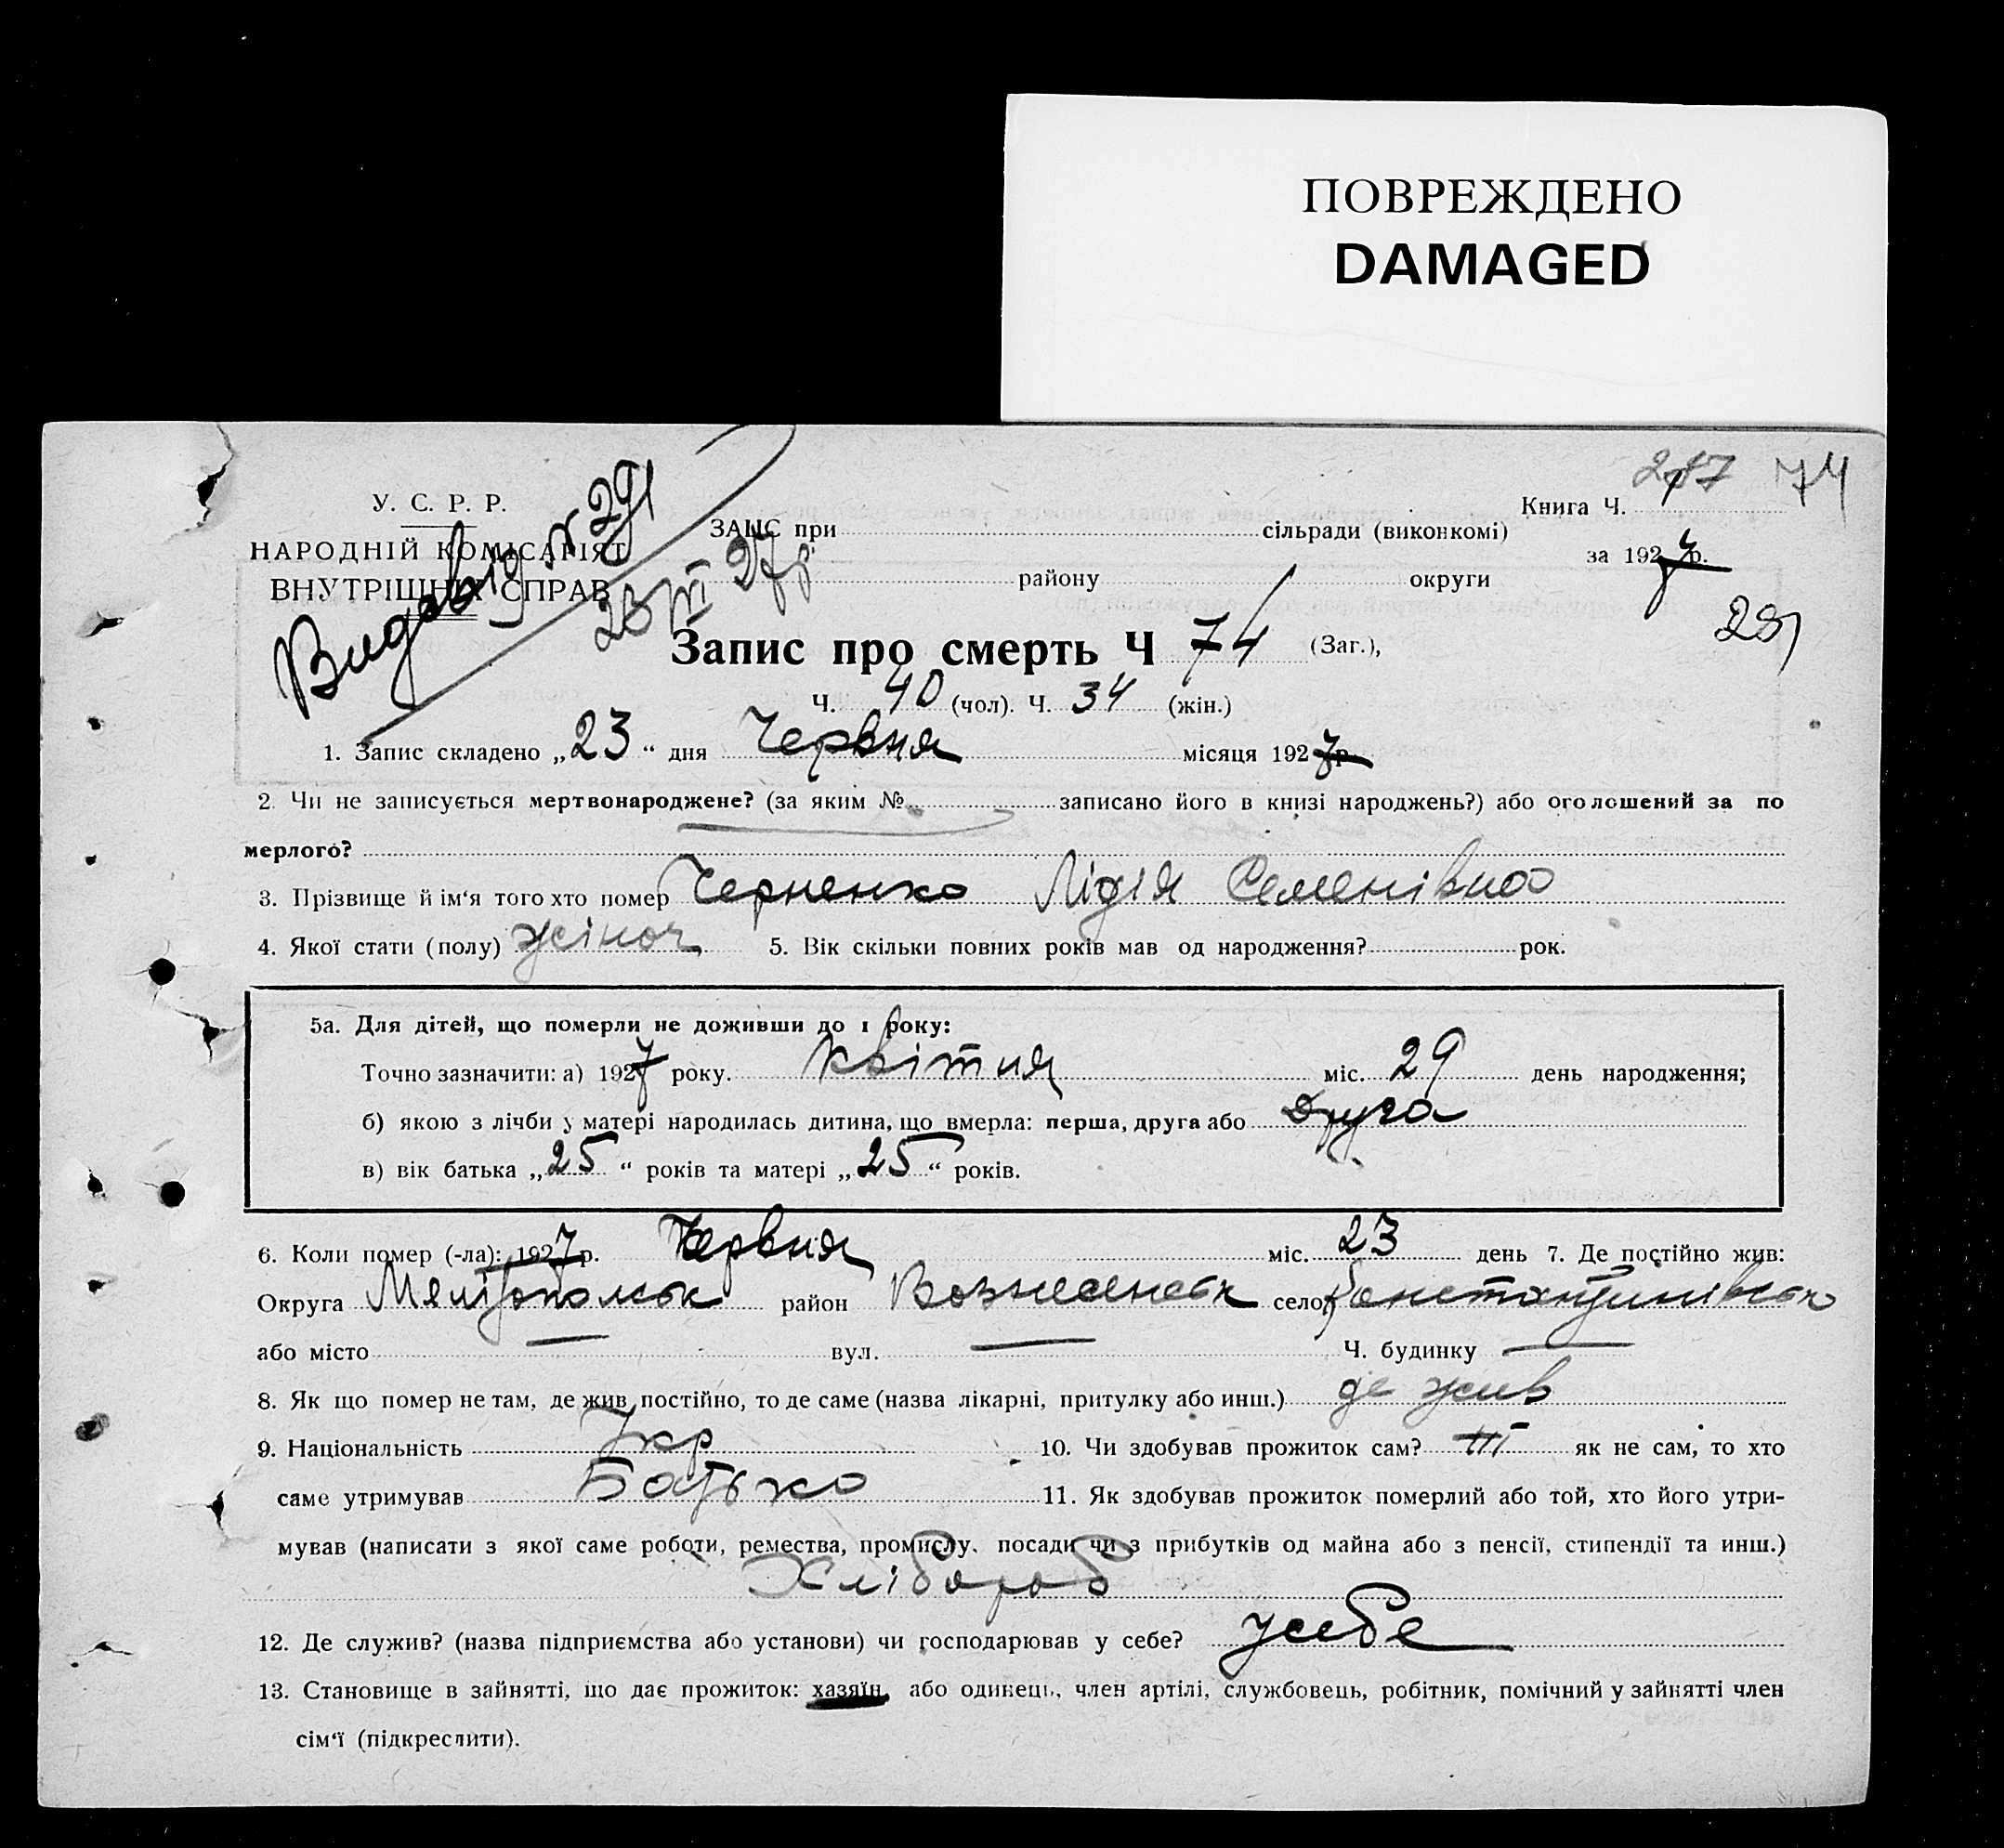 ПОВРЕЖДЕНО
DAMAGED
217 74
У. С. Р. Р.
НАРОДНІЙ КОМІСАРІЯТ
ВНУТРІШНІХ СПРАВ
Видавід. № 291
23 VI 27 р.
ЗАПС при сільради (виконкомі)
району округи
Книга Ч.
за 1927 р.
291
Запис про смерть Ч 74 (Заг.),
Ч. 40 (чол). Ч. 34 (жін.)
1. Запис складено „23“ дня Червня місяця 1927 р.
2. Чи не записується мертвонароджене? (за яким № записано його в книзі народжень?) або оголошений за по
мерлого?
3. Прізвище й ім'я того хто помер Черненко Лідія Семенівна
4. Якої стати (полу) жіноч 5. Вік скільки повних років мав од народження? рок.
5а. Для дітей, що померли не доживши до 1 року:
Точно зазначити: а) 1927 року. Квітня міс. 29 день народження;
б) якою з лічби у матері народилась дитина, що вмерла: перша, друга або Друга
в) вік батька „25“ років та матері „25“ років.
6. Коли помер (-ла): 1927 р. Червня міс. 23 день 7. Де постійно жив:
Округа Мелітопольськ район Вознесенськ село Констянтинівськ
або місто — вул. — Ч. будинку —
8. Як що помер не там, де жив постійно, то де саме (назва лікарні, притулку або инш.) де жив
9. Національність Укр 10. Чи здобував прожиток сам? як не сам, то хто
саме утримував Батько 11. Як здобував прожиток померлий або той, хто його утри-
мував (написати з якої саме роботи, ремества, промислу, посади чи з прибутків од майна або з пенсії, стипендії та инш.)
Хлібороб
12. Де служив? (назва підприємства або установи) чи господарював у себе? у себе
13. Становище в зайнятті, що дає прожиток: хазяїн, або одинець, член артілі, службовець, робітник, помічний у зайнятті член
сім'ї (підкреслити).